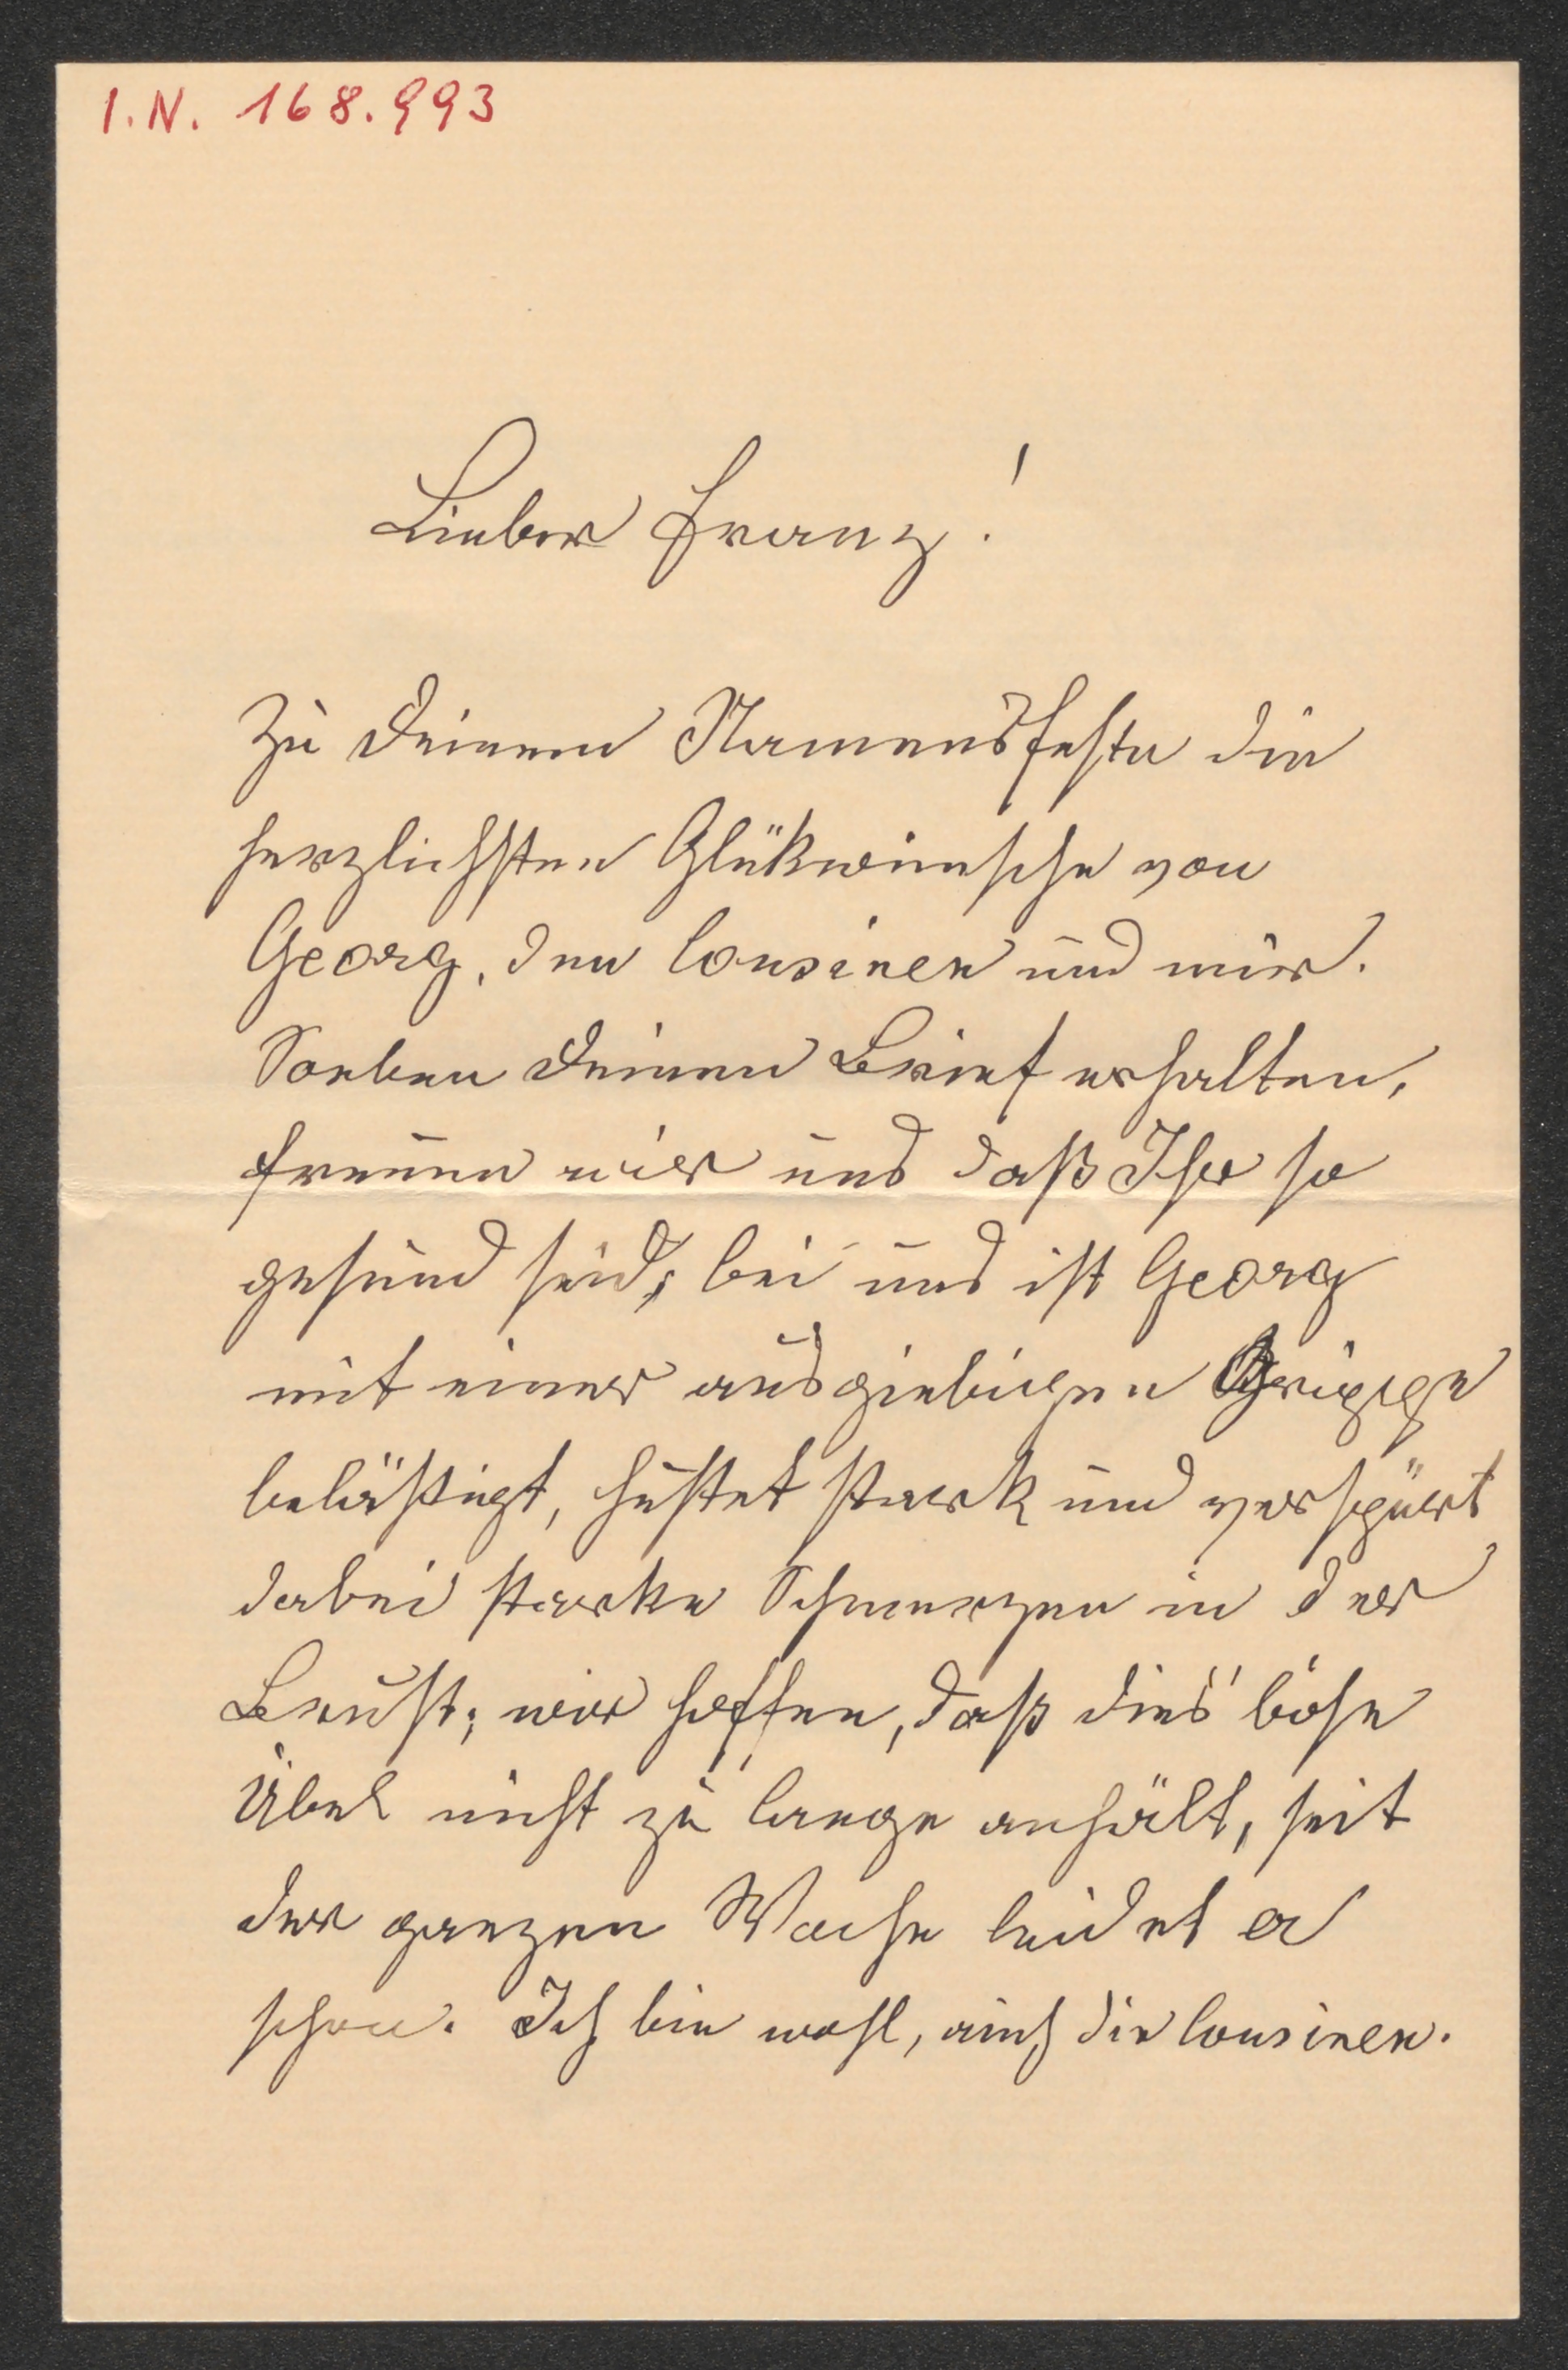 I.N. 168.993
Lieber Franz!
Zu Deinem Namensfeste die
herzlichsten Glükwünsche von
Georg, den Cousinen und mir.
Soeben Deinen Brief erhalten,
freuen wir uns daß Ihr so
gesund seid; bei uns ist Georg
mit einer ausgiebigen Grippe
belästigt, hustet stark und verspürt
dabei starke Schmerzen in der
Brust; wir hoffen, daß dies böse
Übel nicht zu lange anhält, seit
der ganzen Woche leidet er
schon. Ich bin wohl, auch die Cousinen.